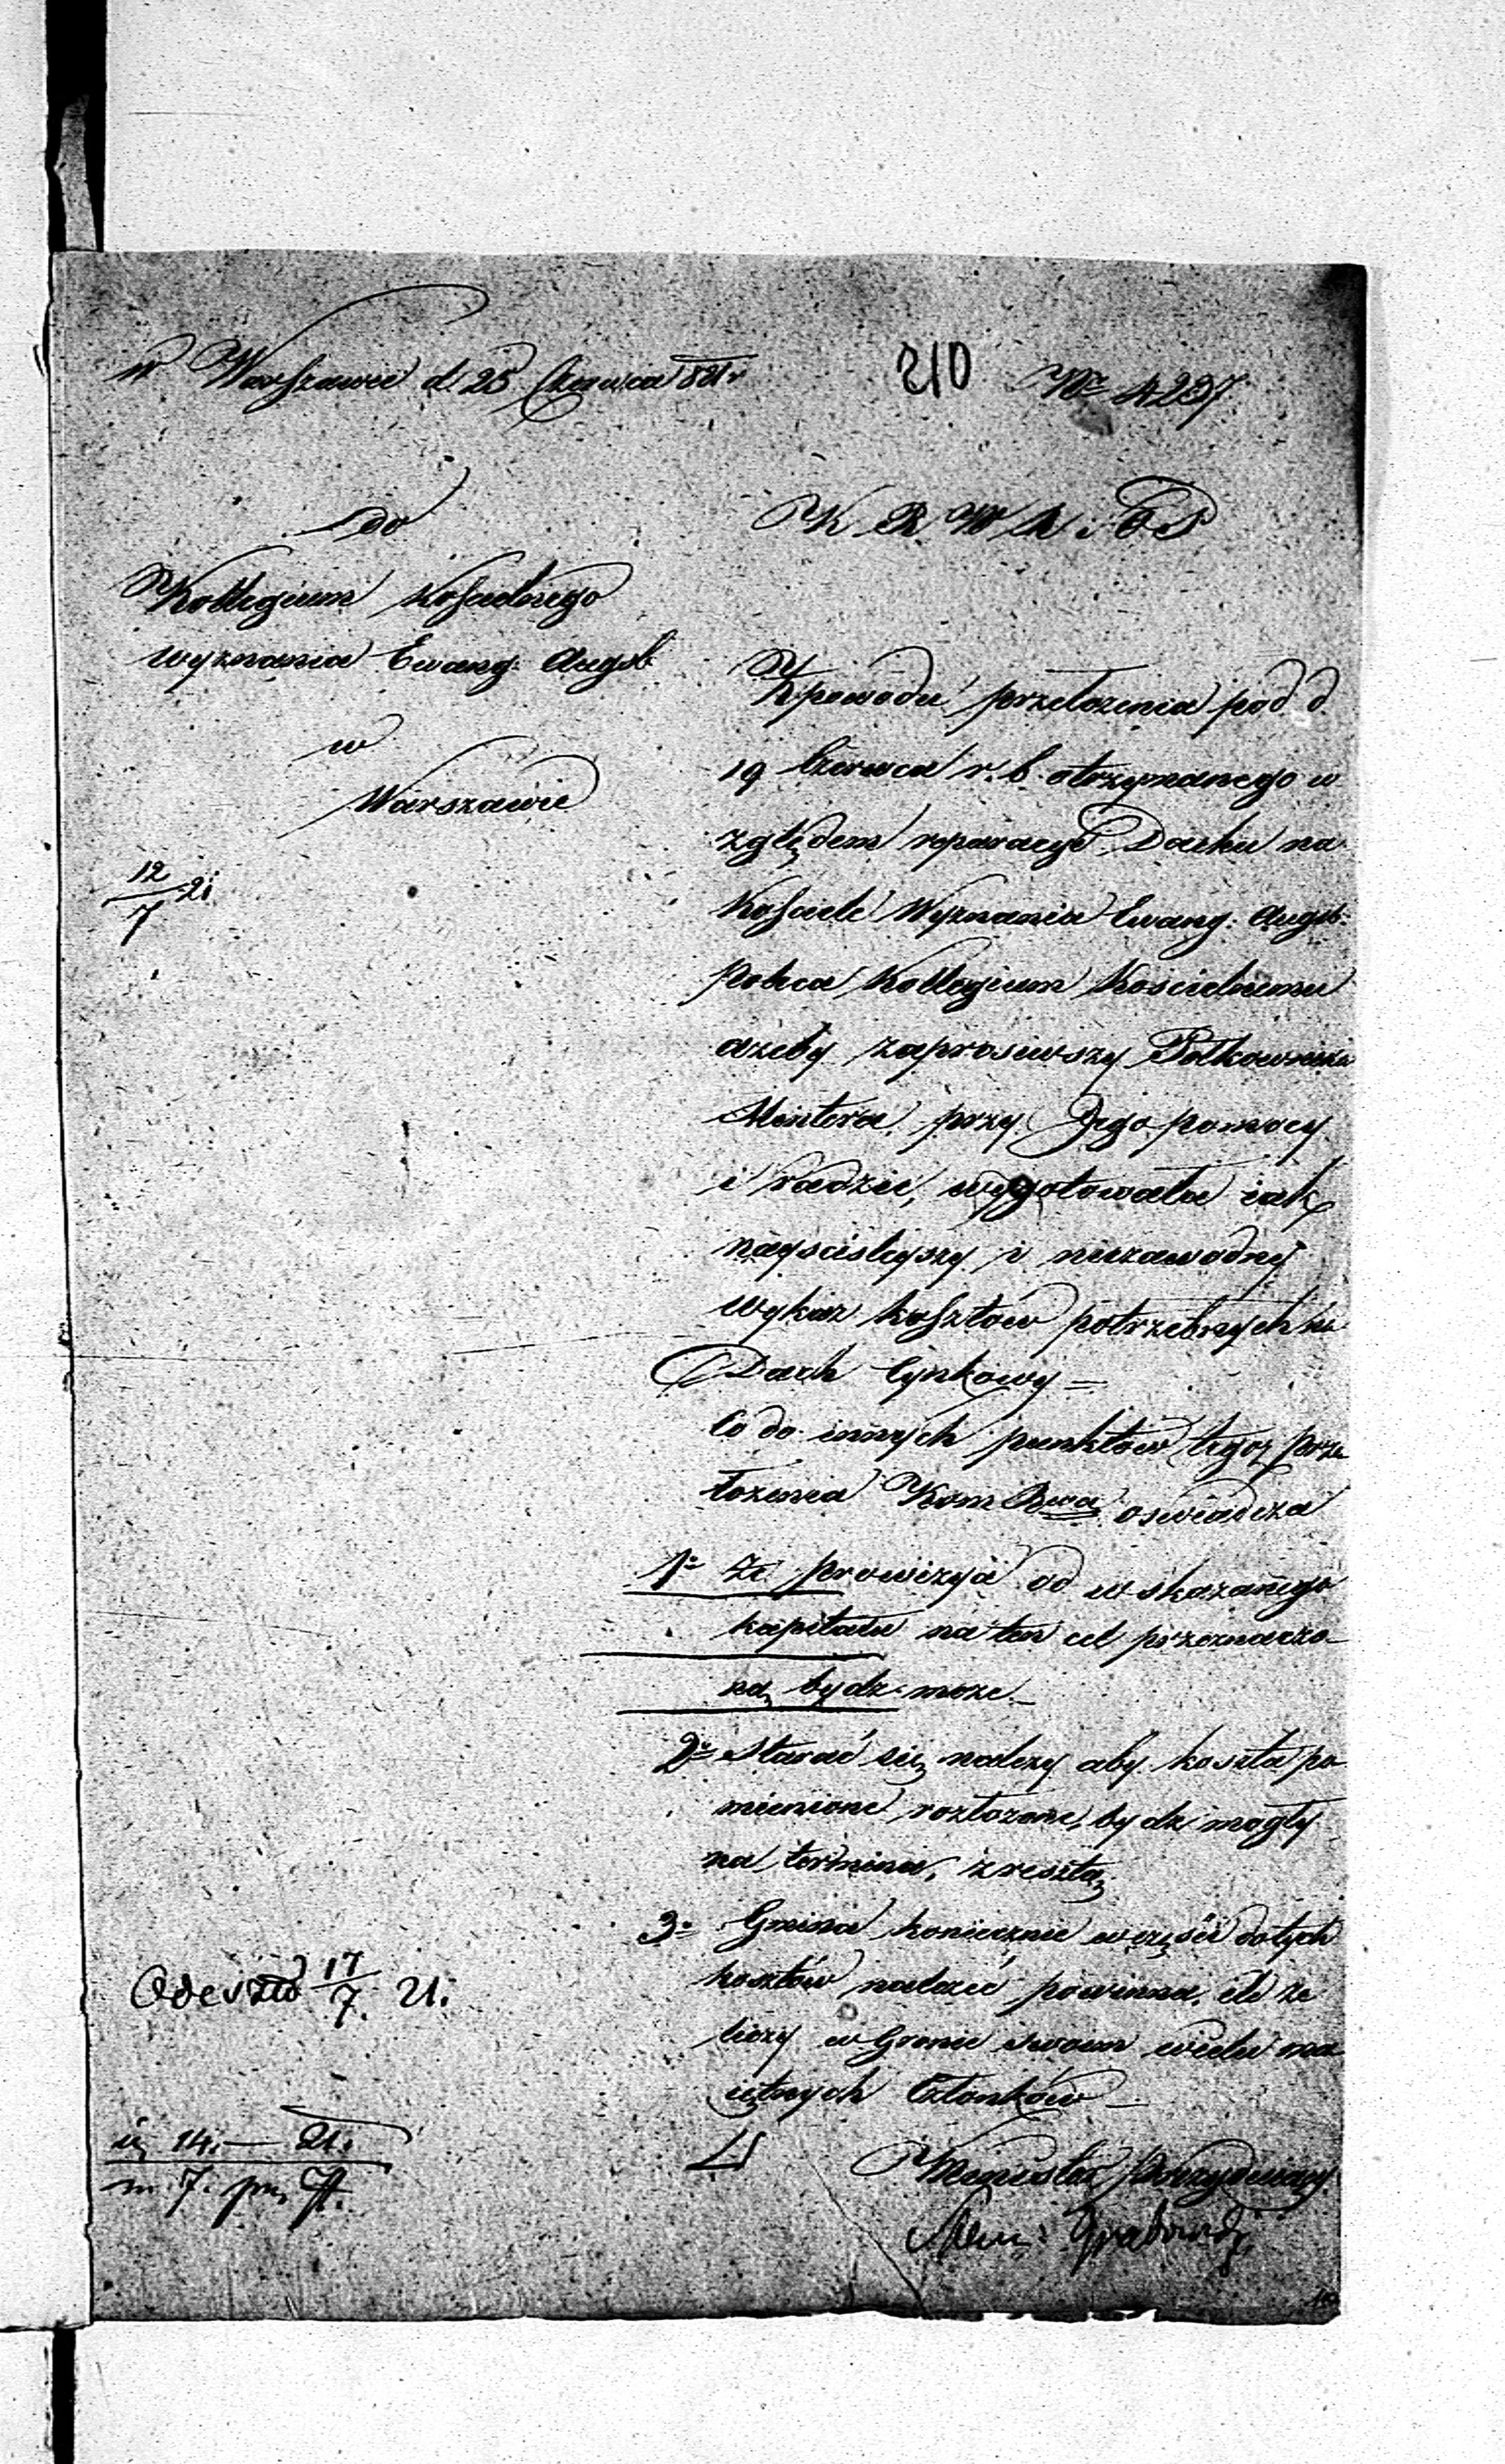 w Warszawie d 25 Czerwca 821 r
210
No 4237
do
Kollegium Kościelnego
wyznania Ewang: Augsb
w
Warszawie
12/7 21
K R W R i O P
Z powodu przełożenia pod d
19 Czerwca r. b. otrzymanego w
zględem reparacyi Dachu na
Kościele Wyznania Ewang: Augsb:
Poleca Kollegium Kościelnemu
ażeby zaprosiwszy Półkownika
Mintera, przy Jego pomocy
i radzie, wygotowała iak
nayściśleyszy i niezawodny
wykaz kosztów potrzebnych na
Dach Cynkowy =
Co do innych punktów tegoż prze
łożenia Kom Rwa oświadcza
1o że prowizya od wskazanego
kapitału na ten cel przeznaczo-
ną bydź może. –
2o Starać się należy aby koszta po
mienione rozłożone bydź mogły
na termina, zresztą
3o Gmina koniecznie w części do tych
kosztów należeć powinna, ile że
liczy w Gronie swoim wielu ma
iętnych Członków –
Minister Prezyduiący
Grabowski
Odeszło 17/7. 21.
14. – 21.
m. 7.